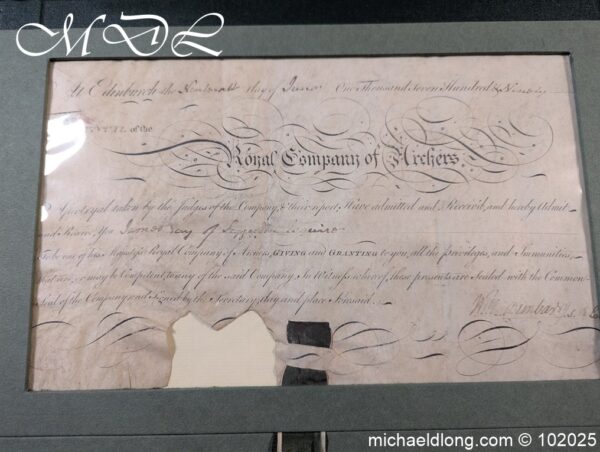 MDL
At Edinburgh the day of June One Thousand Seven Hundred & Ninety
of the
Royal Company of Archers
taken by the Judges of the Company, & their report, Have admitted and Received, and hereby Admit
and Receive You James of
To be one of his Majesty's Royal Company of Archers, GIVING and GRANTING to you, all the Privileges, and Immunities,
that are, or may be Competent to any of the said Company. In Witness whereof, these presents are Sealed with the Common
Seal of the Company, and Signed by the Secretary, day and place foresaid.
michaeldlong.com © 102025